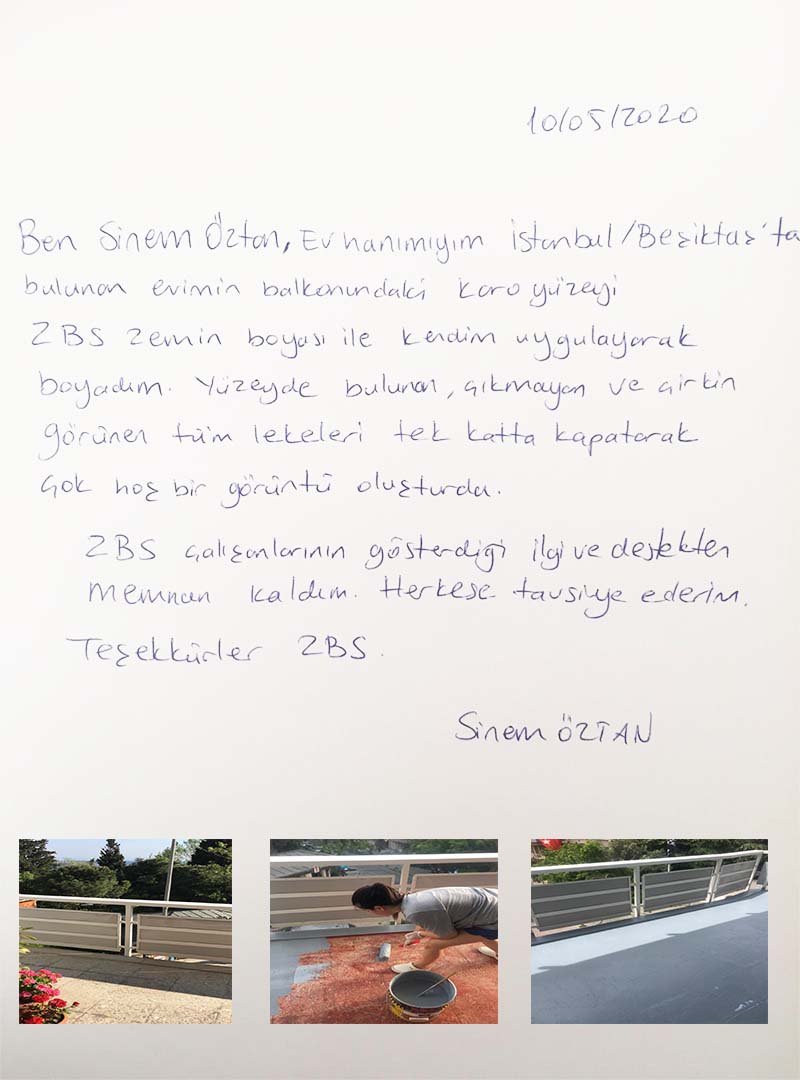 10/05/2020
Ben Sinem Öztan, Ev hanımıyım İstanbul/Beşiktaş'ta
bulunan evimin balkonundaki karo yüzeyi
ZBS zemin boyası ile kendim uygulayarak
boyadım. Yüzeyde bulunan, çıkmayan ve çirkin
görünen tüm lekeleri tek katta kapatarak
çok hoş bir görüntü oluşturdu.
ZBS çalışanlarının gösterdiği ilgi ve destekten
memnun kaldım. Herkese tavsiye ederim.
Teşekkürler ZBS.
Sinem ÖZTAN